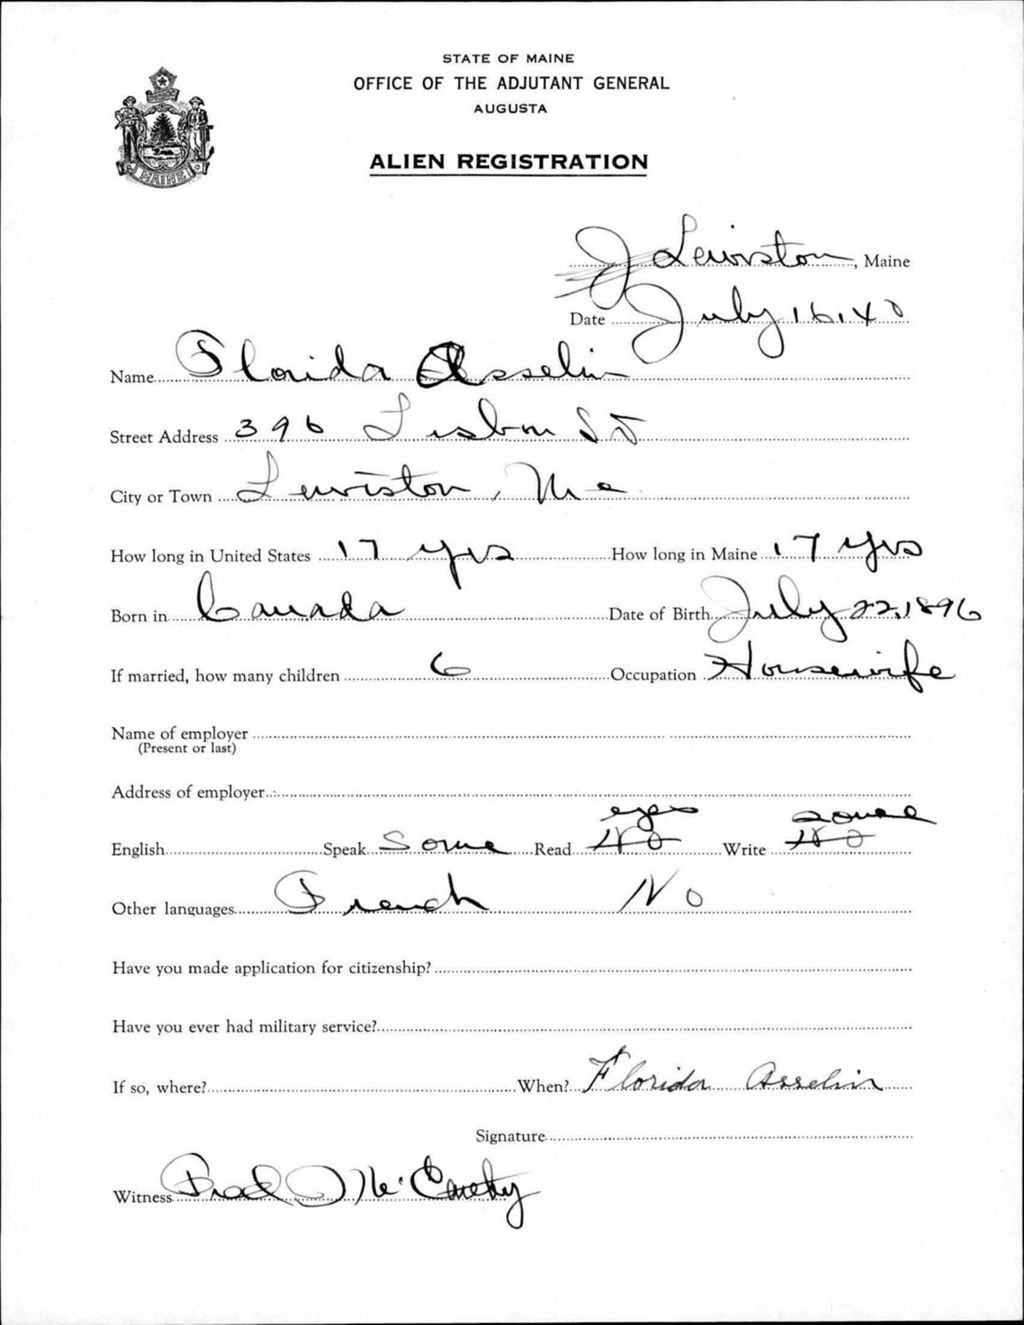 STATE OF MAINE
OFFICE OF THE ADJUTANT GENERAL
AUGUSTA
ALIEN REGISTRATION
MAINE
Lewiston, Maine
Date July 16, 40
Name Florida Asselin
Street Address 396 Lisbon St
City or Town Lewiston, Me
How long in United States 17 yrs How long in Maine 17 yrs
Born in Canada Date of Birth July 22, 1896
If married, how many children 6 Occupation Housewife
Name of employer
(Present or last)
Address of employer
yes some
English Speak Some Read No Write No
Other languages French No
Have you made application for citizenship?
Have you ever had military service?
If so, where? When? Florida Asselin
Signature
Witness Fred D McCarthy